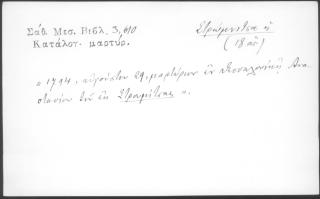 Σάθ. Μεσ. Βιβλ. 3, 610
Κατάλογ. μαρτύρ.
Στρώμνιτσα ἡ
(18 αἰ)
« 1794, αὐγούστου 29, μαρτύριον ἐν Θεσσαλονίκῃ Ἀνα-
στασίου τοῦ ἐκ Στρωμνίτσης ».